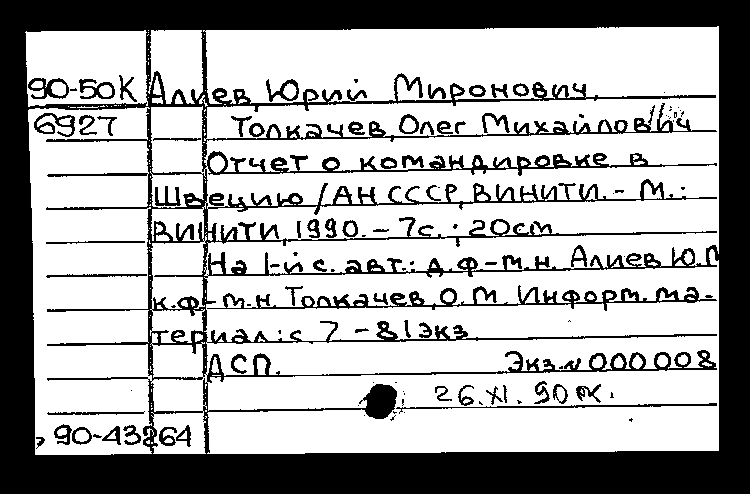 90-50К Алиев, Юрий Миронович,
6927 Толкачев, Олег Михайлович
Отчет о командировке в
Швецию / АН СССР, ВИНИТИ. - М.:
ВИНИТИ, 1990. - 7с.; 20cm
На 1-й с. авт.: д.ф-м.н. Алиев Ю.М
к.ф-м.н. Толкачев, О.М. Информ. ма-
териал: с. 7 - 81экз
ДСП. Экз.N 000008
26.XI.90
90-43264